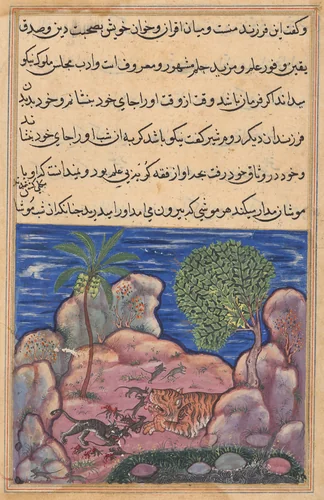 و گفت این فرزند منست و میان اقران و خوان خویش بصحبت دین و صدق
یقین و فور علم و مزید حلم مشهور و معروف است و ادب مجلس ملوک نیکو
میداند اگر فرمان باشد وقت از وقت اورا جای خود بنشانم و خود بدیدن
فرزندان دیگر روم شیر گفت نیکو باشد گربه از شب اورا جای خود بنشاند
و خود در وثاق خود رفت بچه او از فقه گربه بی علم بود و نیدانست که او با
موشان مدارا میکند هر موشی که بیرون می آمد اورا میدرید چنانکه از شب موشان